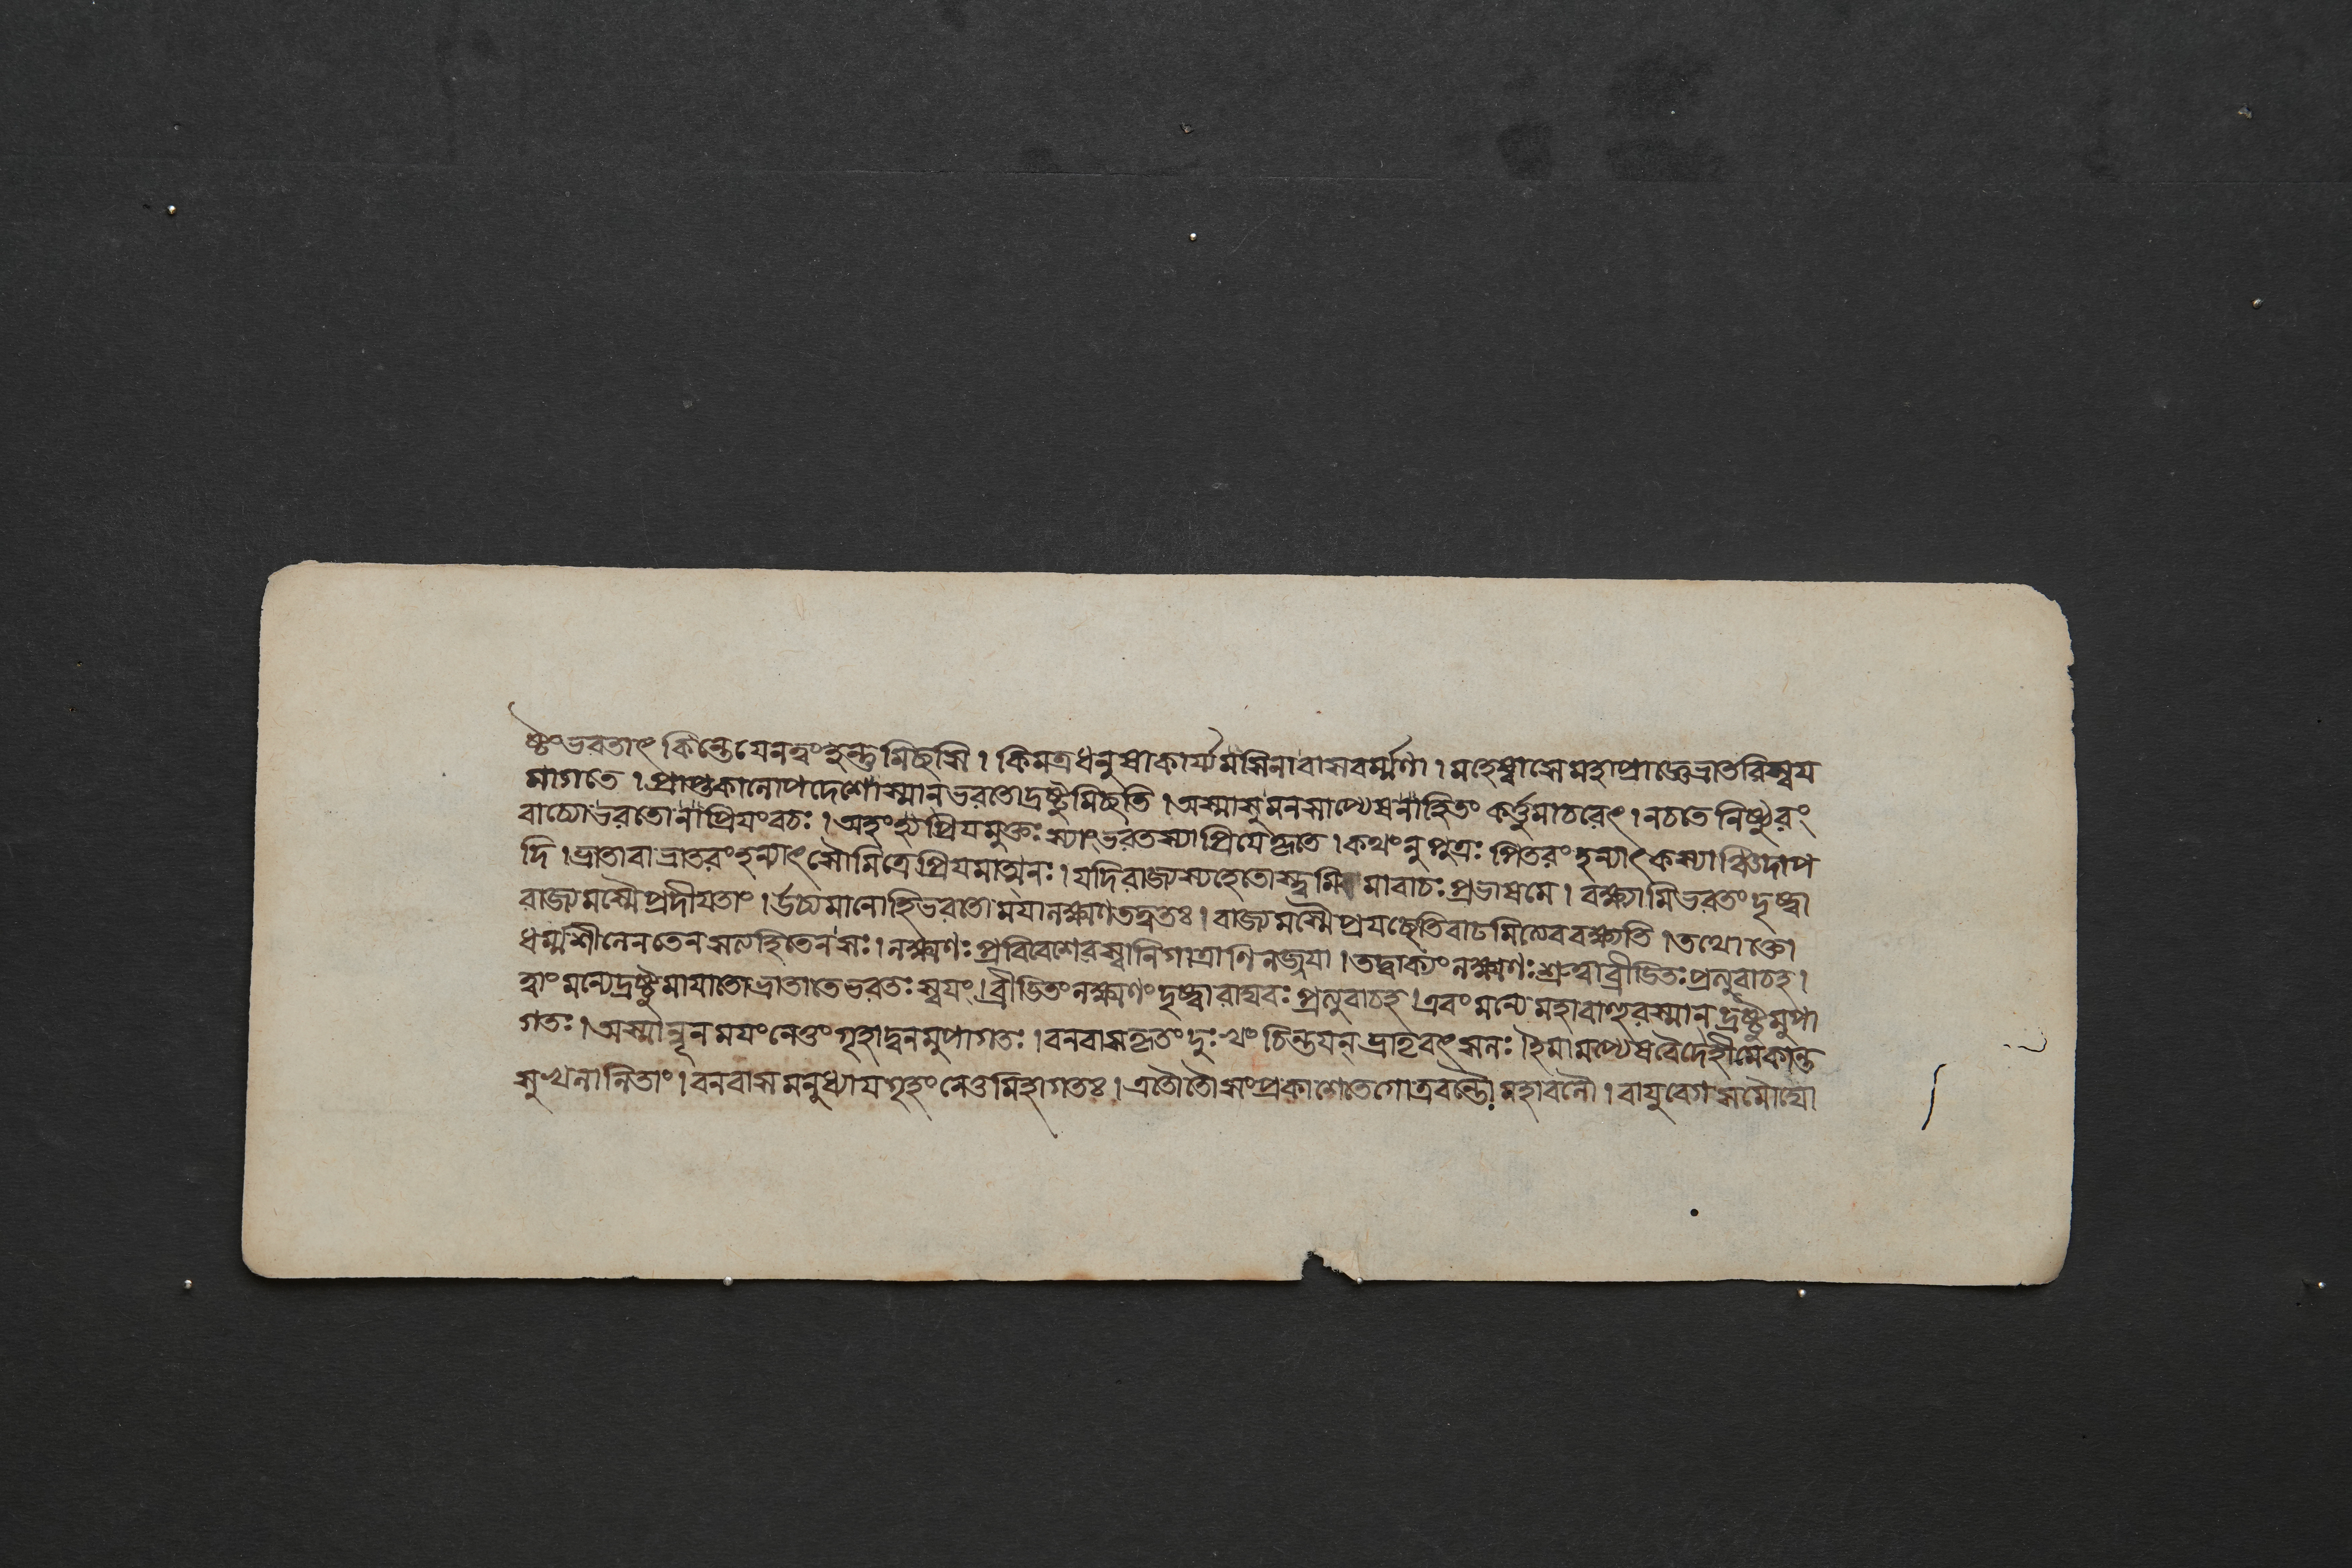 ষ্টংভরতাৎ কিন্তেযেনত্বংহন্তুমিচ্ছসি । কিমত্রধনুষাকার্য্যমসিনাবাসবর্ম্মণা । মহেষ্বাসেমহাপ্রাজ্ঞেভ্রাতরিস্বয
মাগতে । প্রাপ্তকালোপদেশোস্মানভরতোদ্রষ্টুমিচ্ছতি । অস্মাসুমনসাপ্যেষনাহিতং কর্ত্তুমাচরেৎ । নচতে নিষ্ঠুরং
বাচ্যোভরতোনাপ্রিযংবচঃ । অহংহ্যপ্রিযমুক্তঃ স্যাংভরতস্যাপ্রিযেকৃতে । কথংনুপুত্রঃ পিতরংহন্যাৎকস্যাঞ্চিদাপ
দি । ভ্রাতাবাভ্রাতরংহন্যাৎসৌমিত্রেপ্রিযমাত্মনঃ । যদিরাজ্যস্যহেতোস্ত্বমি মাবাচঃ প্রভাষসে । বক্ষ্যামিভরতংদৃষ্ট্বা
রাজ্যমস্মৈপ্রদীযতাং । উচ্যমানোহিভরতোমযালক্ষ্মণতদ্বতঃ । রাজ্যমস্মৈপ্রযচ্ছেতিবাঢমিত্যেববক্ষ্যতি । তথোক্তো
ধর্ম্মশীলেনতেনসত্যহিতেনসঃ । লক্ষ্মণঃ প্রবিবেশেবস্বানিগাত্রাণিলজ্জযা । তদ্বাক্যংলক্ষ্মণঃ শ্রুত্বাব্রীডিতঃ প্রত্যুবাচহ ।
ত্বাংমন্যেদ্রষ্টুমাযাতোভ্রাতাতেভরতঃ স্বযং । ব্রীডিতংলক্ষ্মণংদৃষ্ট্বারাঘবঃ প্রত্যুবাচহ । এবংমন্যেমহাবাহুরস্মানদ্রষ্টুমুপা
গতঃ । অস্মান্নূনমযংনেতুংগৃহাদ্বনমুপাগতঃ । বনবাসকৃতংদুঃখংচিন্তযন ভ্রাতৃবৎসলঃ ইমামপ্যেষবৈদেহীমেকান্ত
সুখলালিতাং । বনবাসমনুধ্যাযগৃহংনেতুমিহাগতঃ । এতৌতৌসংপ্রকাশেতেগোত্রবন্তৌমহাবলৌ । বাযুবেগসমৌঘো